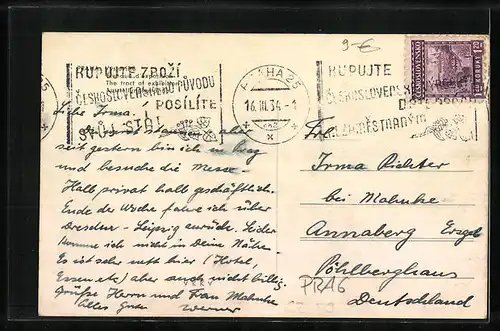 9-€
KUPUJTE ZBOŽÍ
The tract of exhibition
ČESKOSLOVENSKÉHO PŮVODU
POSÍLÍTE
SVŮJ STÁT
PRAHA 25
16.III.34-1
KUPUJTE
ČESKOSLOVENSK
NEZAMĚSTNANÝM
ČESKOSLOVENSKO
1.20
Liebe Irma!
aber
seit gestern bin ich in Prag
und besuche die Messe.
Halb privat halb geschäftlich.
Ende der Woche fahre ich über
Dresden - Leipzig zurück. Leider
komme ich nicht in Deine Nähe.
Es ist sehr nett hier (Hotel,
Essen etc) aber auch nicht billig.
Grüsse Herrn und Frau Mahnke
Alles Gute Werner
Frl.
Irma Richter
bei Mahnke
Annaberg Erzgeb
Pöhlberghaus
Deutschland
PRAG